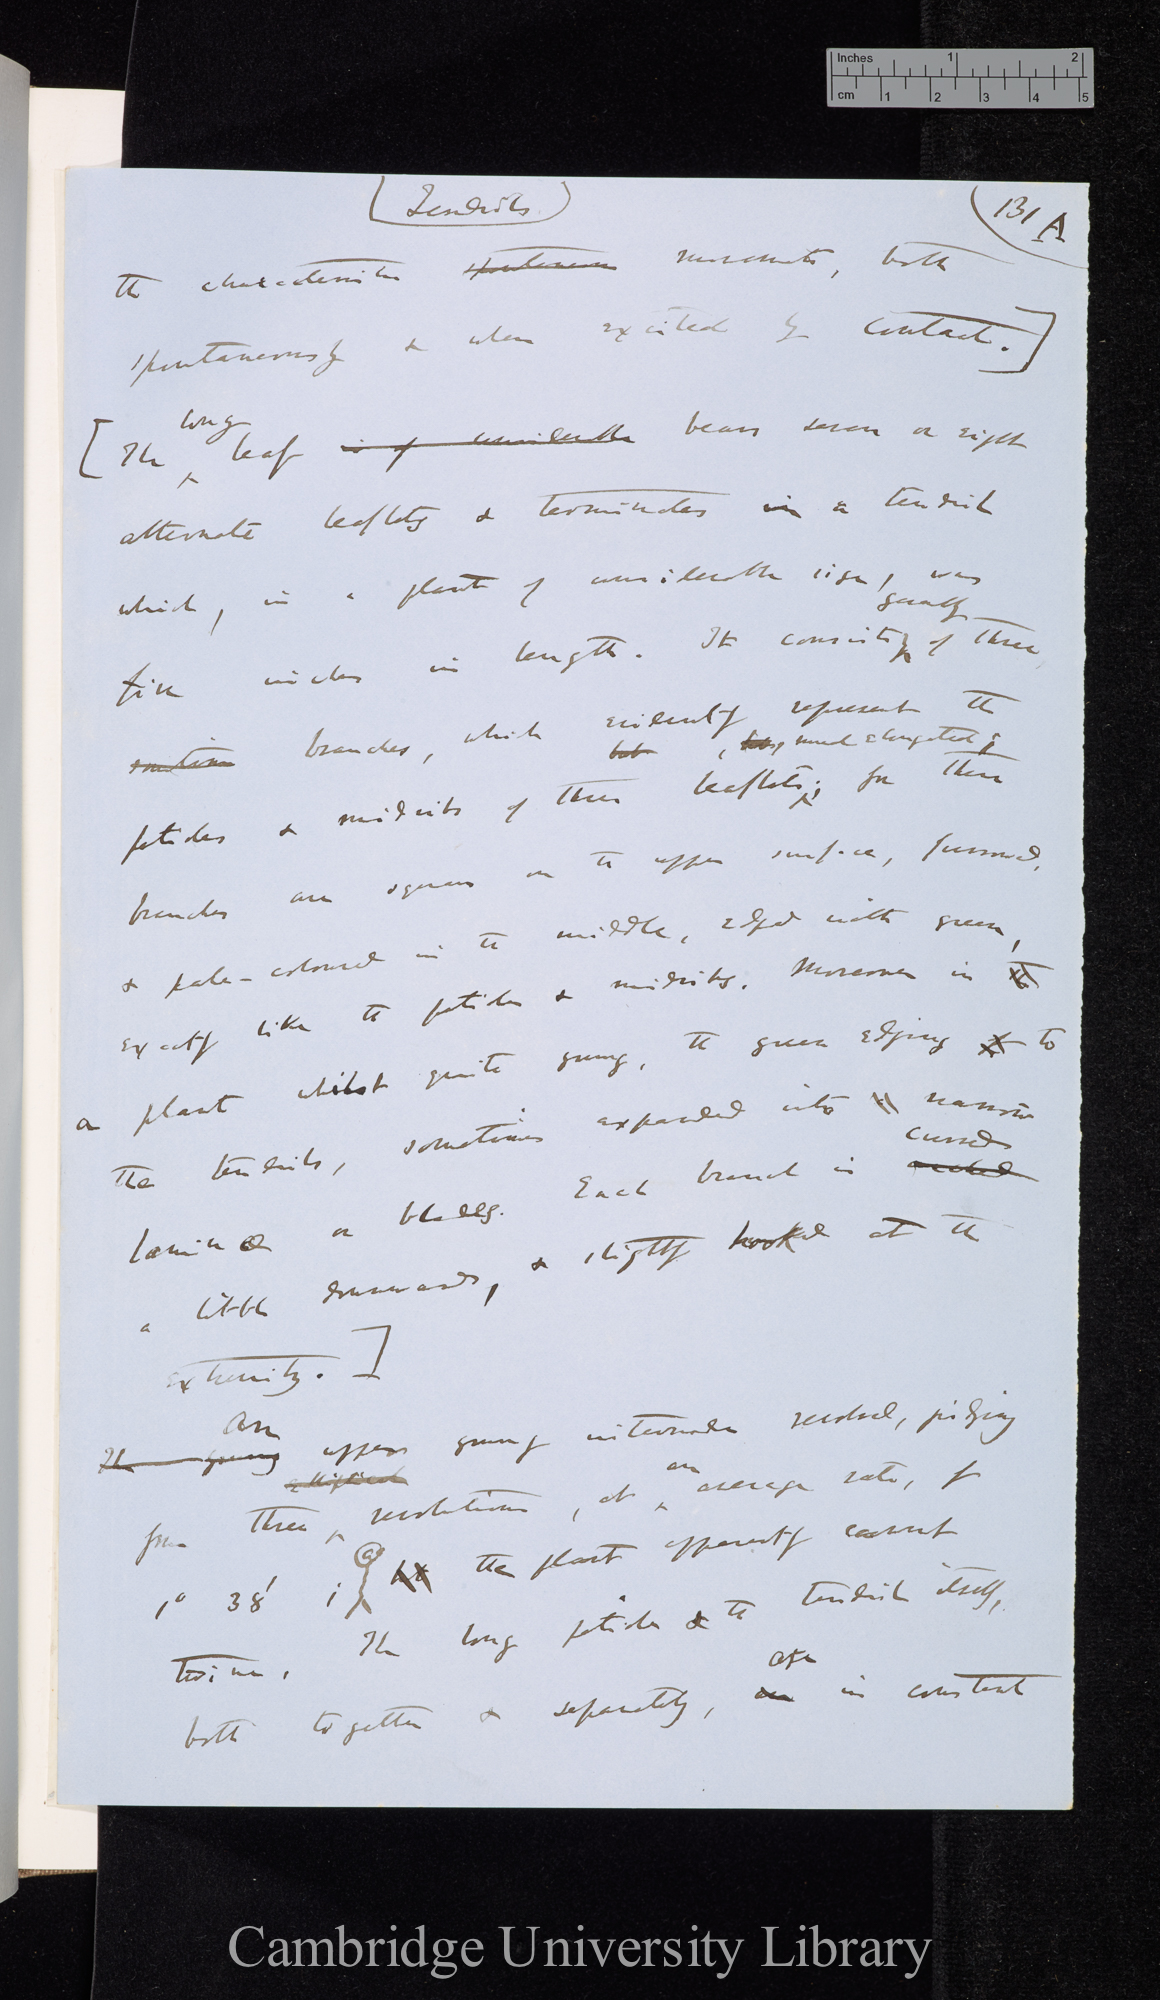 Inches 1 2
cm 1 2 3 4 5
(Tendrils)
131 A
the characteristic spontaneous movements, both
spontaneously & when excited by contact.]
long
[The leaf is of considerable bears seven or eight
alternate leaflets & terminates in a tendril
which, in a plant of considerable size, was
generally
five inches in length. It consists of three
sometimes branches, which evidently represent the
but , but, much elongated;
petioles & midribs of three leaflets; for these
branches are square on the upper surface, furrowed,
& pale-coloured in the middle, edged with green,
exactly like the petioles & midribs. Moreover in the
a plant whilst quite young, the green edging to
the tendrils, sometimes expanded into a narrow
curved
laminæ or blades. Each branch is arched
a little downwards, & slightly hooked at the
extremity.]
An
The young upper young internode revolved, judging
elliptical an
from three revolutions, at average rate, of
1° 38' ; but the plant apparently cannot
twine. The long petioles & the tendril itself,
are
both together & separately, are in constant
Cambridge University Library